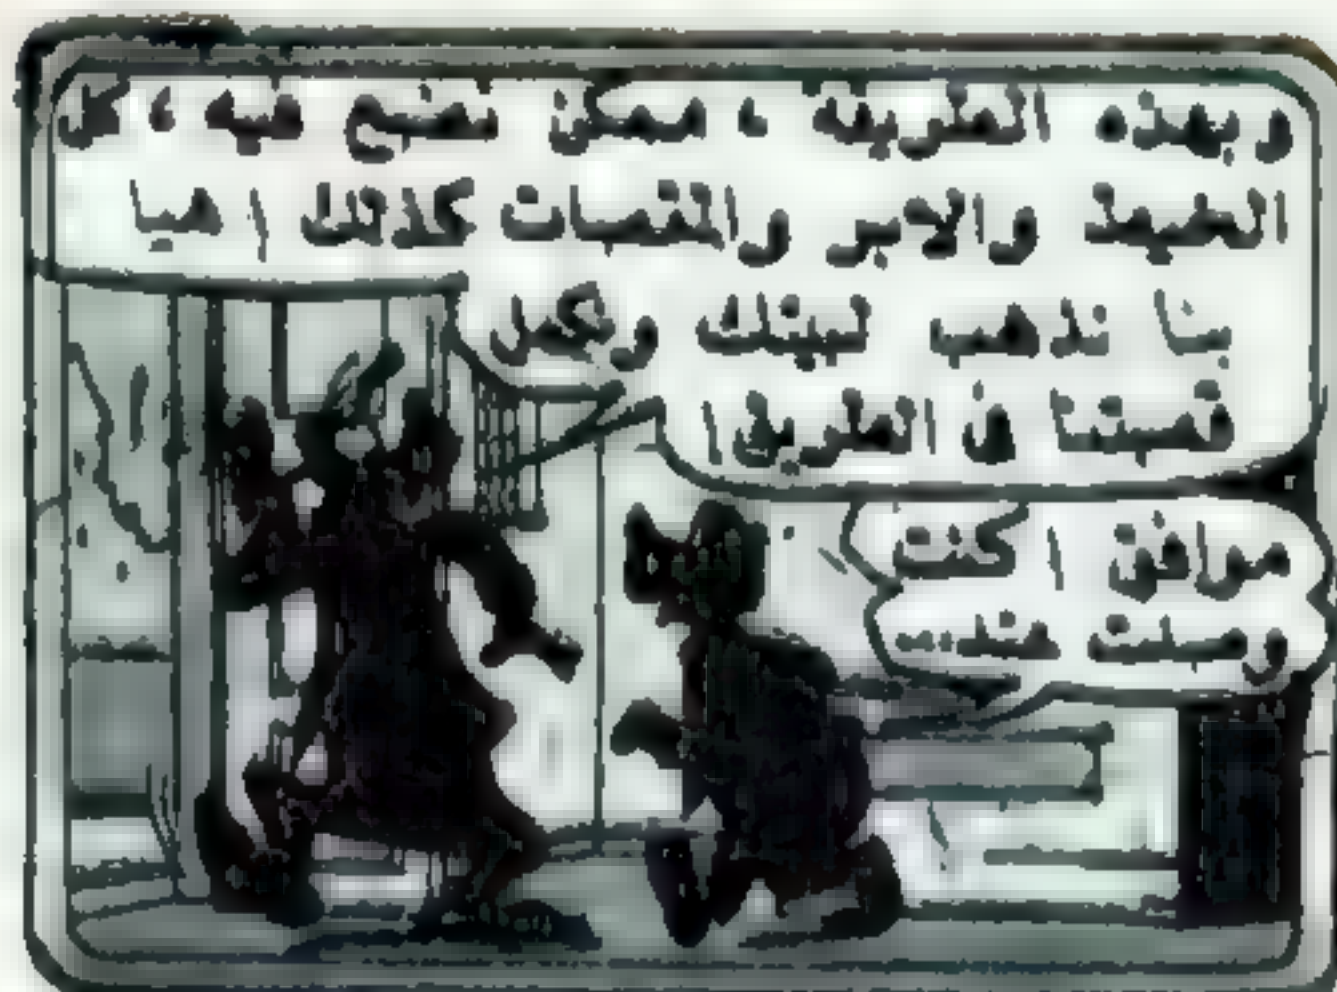 وبهذه الطريقة ، ممكن نضع فيه ، كل
والابر والمقصات كذلك ! هيا
بنا نذهب لبيتك ونكمل
قصتنا فى الطريق !
موافق ! كنت
وصلت عند...